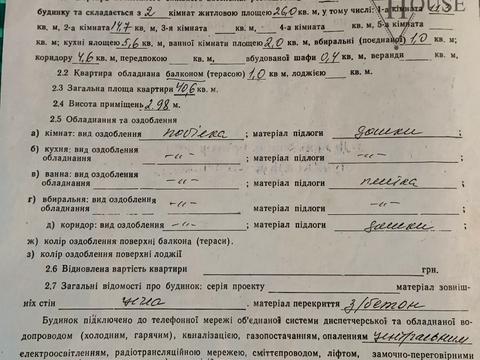 будинку та складається з 2 кімнат житловою площею 26,0 кв. м, у тому числі: 1-а кімната
кв. м, 2-а кімната 14,7 кв. м, 3-я кімната кв. м, 4-а кімната кв. м, 5-а кімната HOUSE
кв. м; кухні площею 5,6 кв. м, ванної кімнати площею 2,0 кв. м, вбиральні (поєднаної) 1,0 кв. м;
коридору 4,6 кв. м, передпокою кв. м, вбудованої шафи 0,4 кв. м, веранди кв. м.
2.2 Квартира обладнана балконом (терасою) 1,0 кв. м, лоджією кв. м.
2.3 Загальна площа квартири 40,6 кв. м.
2.4 Висота приміщень 2.98 м.
2.5 Обладнання та оздоблення
а) кімнат: вид оздоблення побілка ; матеріал підлоги дошки ;
б) кухня: вид оздоблення
обладнання -„- ; матеріал підлоги -„- ;
в) ванна: вид оздоблення
обладнання -„- ; матеріал підлоги плитка ;
г) вбиральня: вид оздоблення
обладнання -„- ; матеріал підлоги -„- ;
д) коридор: вид оздоблення -„- ; матеріал підлоги дошки ;
ж) колір оздоблення поверхні балкона (тераси).
з) колір оздоблення поверхні лоджії
2.6 Відновлена вартість квартири грн.
2.7 Загальні відомості про будинок: серія проекту матеріал зовніш-
ніх стін цегла . матеріал перекриття з/бетон
Будинок підключено до телефонної мережі об'єднаної системи диспетчерської та обладнано во-
допроводом (холодним, гарячим), каналізацією, газопостачанням, опаленням центральним
електроосвітленням, радіотрансляційною мережею, сміттєпроводом, ліфтом, замочно-переговорними